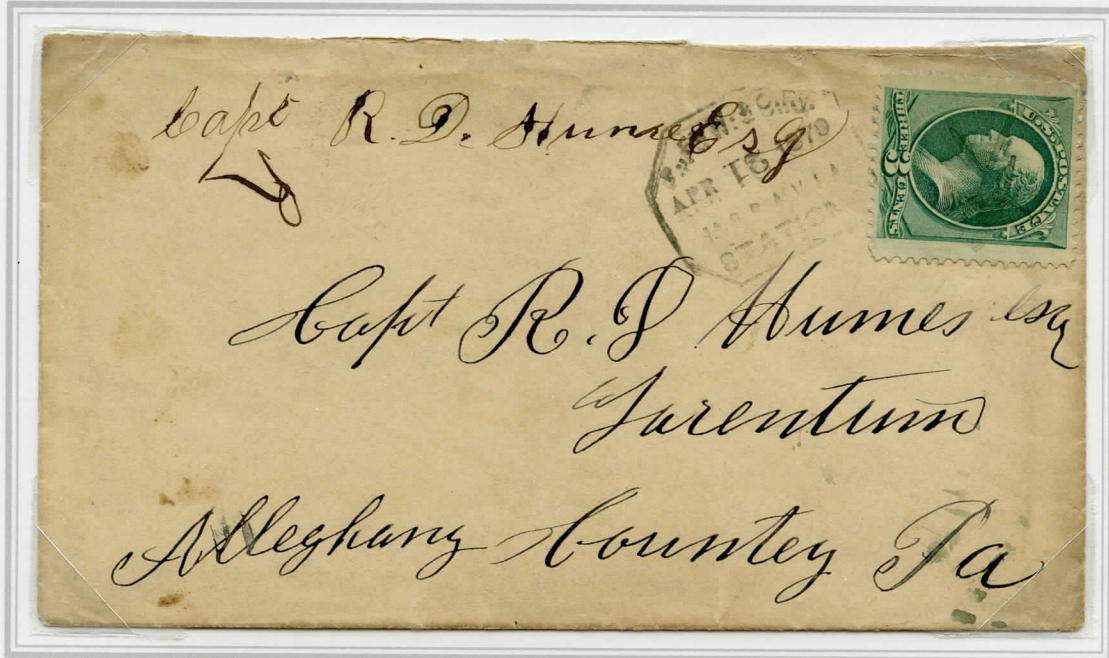 Capt R. D. Humes Esq
APR 18 1879
STATION
U.S. POSTAGE
THREE CENTS
Capt R. D Humes esq
Tarentum
Alleghany Countey Pa